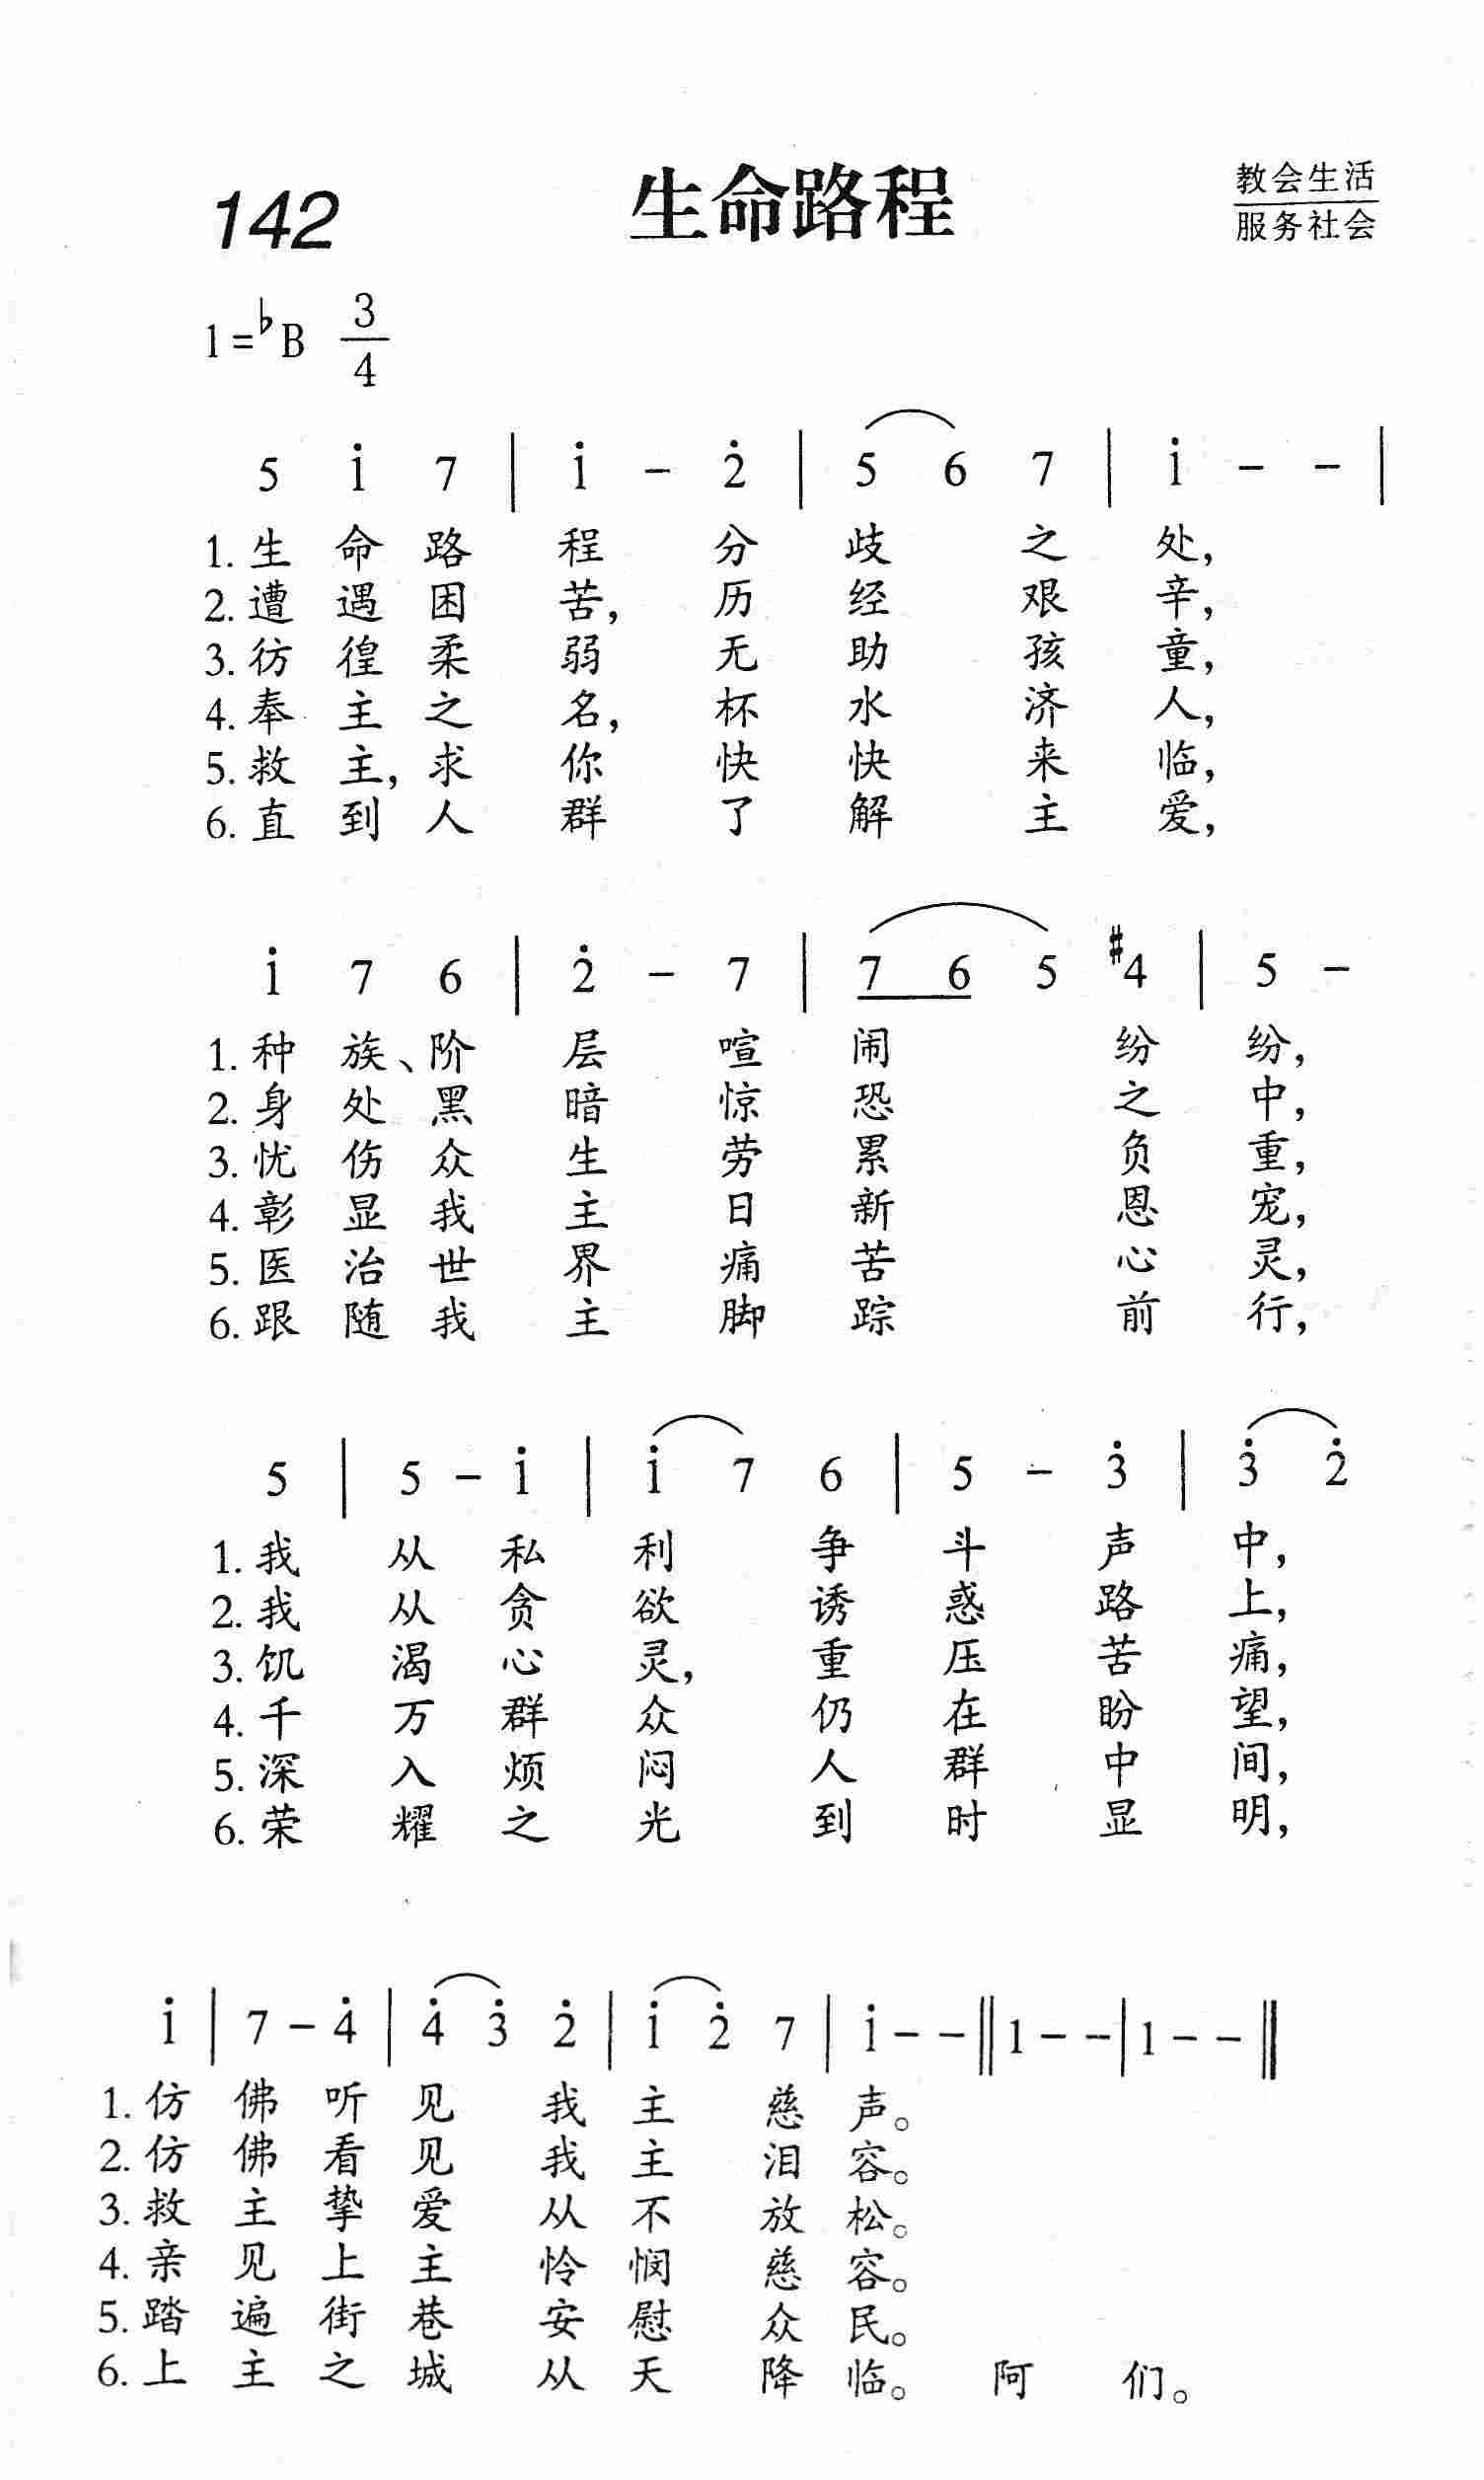 142 生命路程 教会生活
服务社会
1=♭B 3/4
5 i̇ 7 | i̇ - 2̇ | 5 6 7 | i̇ - - |
1.生命路程分歧之处,
2.遭遇困苦,历经艰辛,
3.彷徨柔弱无助孩童,
4.奉主之名,杯水济人,
5.救主,求你快快来临,
6.直到人群了解主爱,
i̇ 7 6 | 2̇ - 7 | 7 6 5 #4 | 5 -
1.种族、阶层喧闹纷纷,
2.身处黑暗惊恐之中,
3.忧伤众生劳累负重,
4.彰显我主日新恩宠,
5.医治世界痛苦心灵,
6.跟随我主脚踪前行,
5 | 5 - i̇ | i̇ 7 6 | 5 - 3̇ | 3̇ 2̇
1.我从私利争斗声中,
2.我从贪欲诱惑路上,
3.饥渴心灵,重压苦痛,
4.千万群众仍在盼望,
5.深入烦闷人群中间,
6.荣耀之光到时显明,
i̇ | 7 - 4̇ | 4̇ 3̇ 2̇ | i̇ 2̇ 7 | i̇ - - || 1 - - | 1 - - ||
1.仿佛听见我主慈声。
2.仿佛看见我主泪容。
3.救主挚爱从不放松。
4.亲见上主怜悯慈容。
5.踏遍街巷安慰众民。
6.上主之城从天降临。阿们。